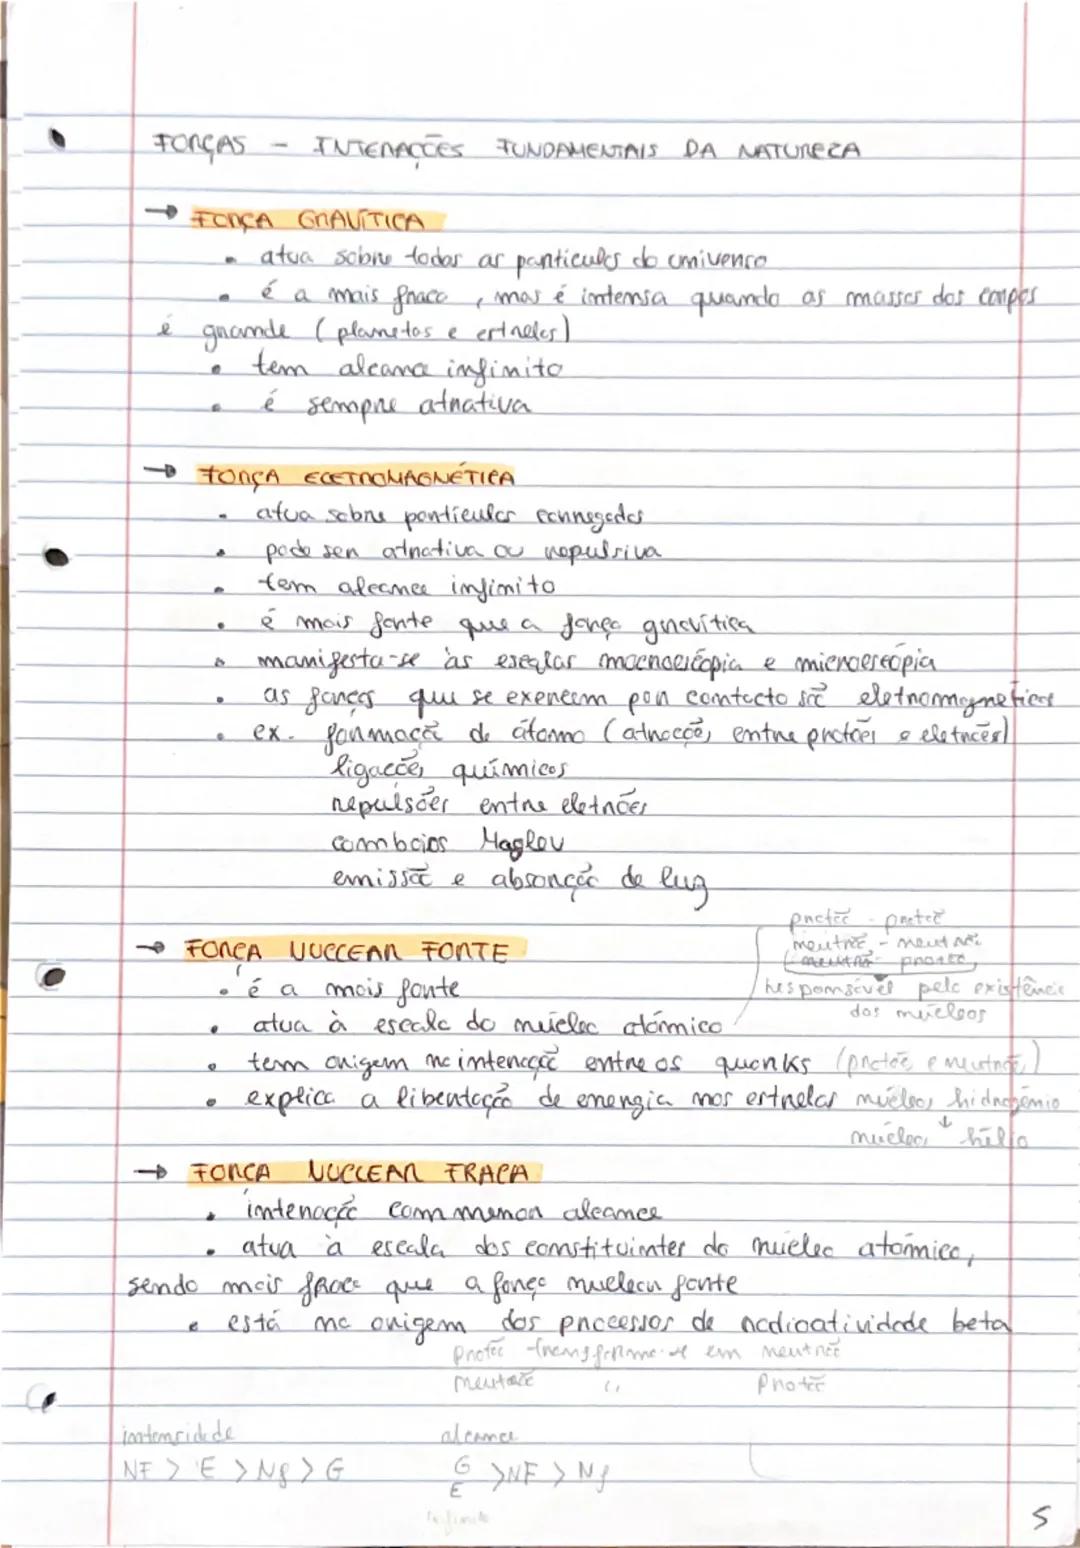 FORÇAS - INTERAÇÕES FUNDAMENTAIS DA NATUREZA
→ FORÇA GRAVÍTICA
• atua sobre todas as partículas do universo
• é a mais fraca, mas é intensa quando as massas dos corpos
é grande (planetas e estrelas)
• tem alcance infinito
• é sempre atrativa
→ FORÇA ELETROMAGNÉTICA
• atua sobre partículas carregadas
• pode ser atrativa ou repulsiva
• tem alcance infinito
• é mais forte que a força gravítica
• manifesta-se às escalas macroscópia e microscópia
• as forças que se exercem por contacto são eletromagnéticas
• ex. formação de átomo (atracções entre protões e eletrões)
ligações químicas
repulsões entre eletrões
comboios Maglev
emissão e absorção de luz
protão - protão
neutrão - neutrão
neutrão - protão
→ FORÇA NUCLEAR FORTE
• é a mais forte
responsável pela existência
dos núcleos
• atua à escala do núcleo atómico
• tem origem na interação entre os quarks (protão e neutrão)
• explica a libertação de energia nas estrelas núcleos hidrogénio
↓
núcleos hélio
→ FORÇA NUCLEAR FRACA
• interação com menor alcance
• atua à escala dos constituintes do núcleo atómico,
sendo mais fraca que a força nuclear forte
• está na origem dos processos de radioatividade beta
protão transforma-se em neutrão
neutrão " protão
intensidade
NF > E > Nf > G
alcance
G
E > NF > Nf
infinito
5